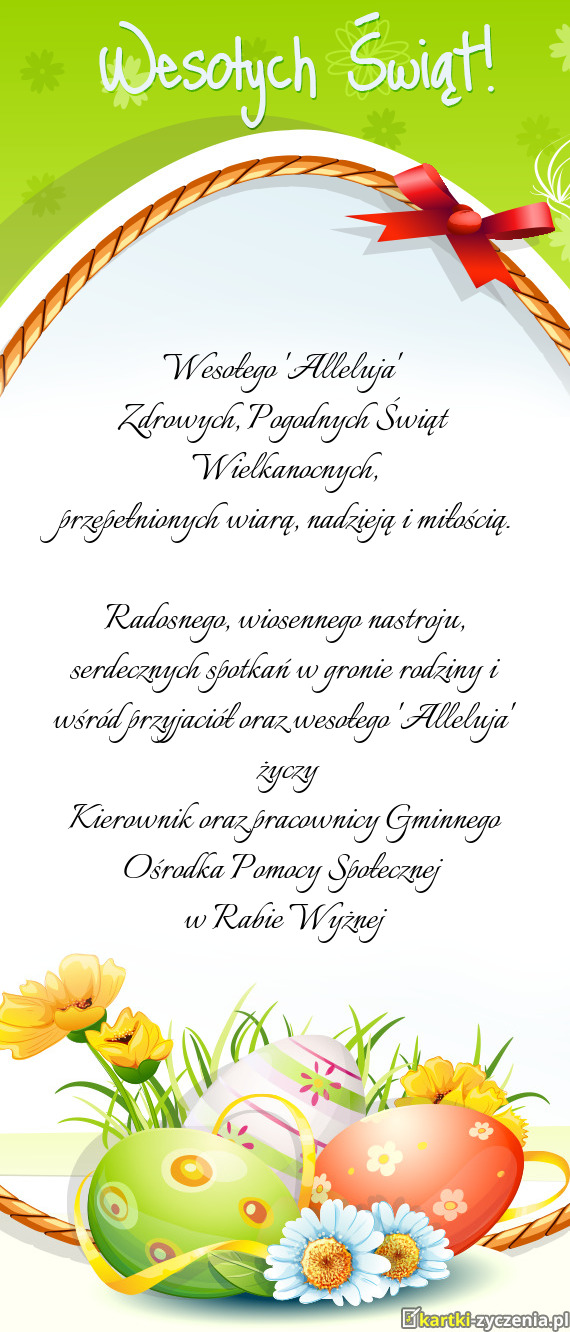 Wesołych Świąt!
Wesołego 'Alleluja'
Zdrowych, Pogodnych Świąt
Wielkanocnych,
przepełnionych wiarą, nadzieją i miłością.
Radosnego, wiosennego nastroju,
serdecznych spotkań w gronie rodziny i
wśród przyjaciół oraz wesołego 'Alleluja'
życzy
Kierownik oraz pracownicy Gminnego
Ośrodka Pomocy Społecznej
w Rabie Wyżnej
kartki-zyczenia.pl